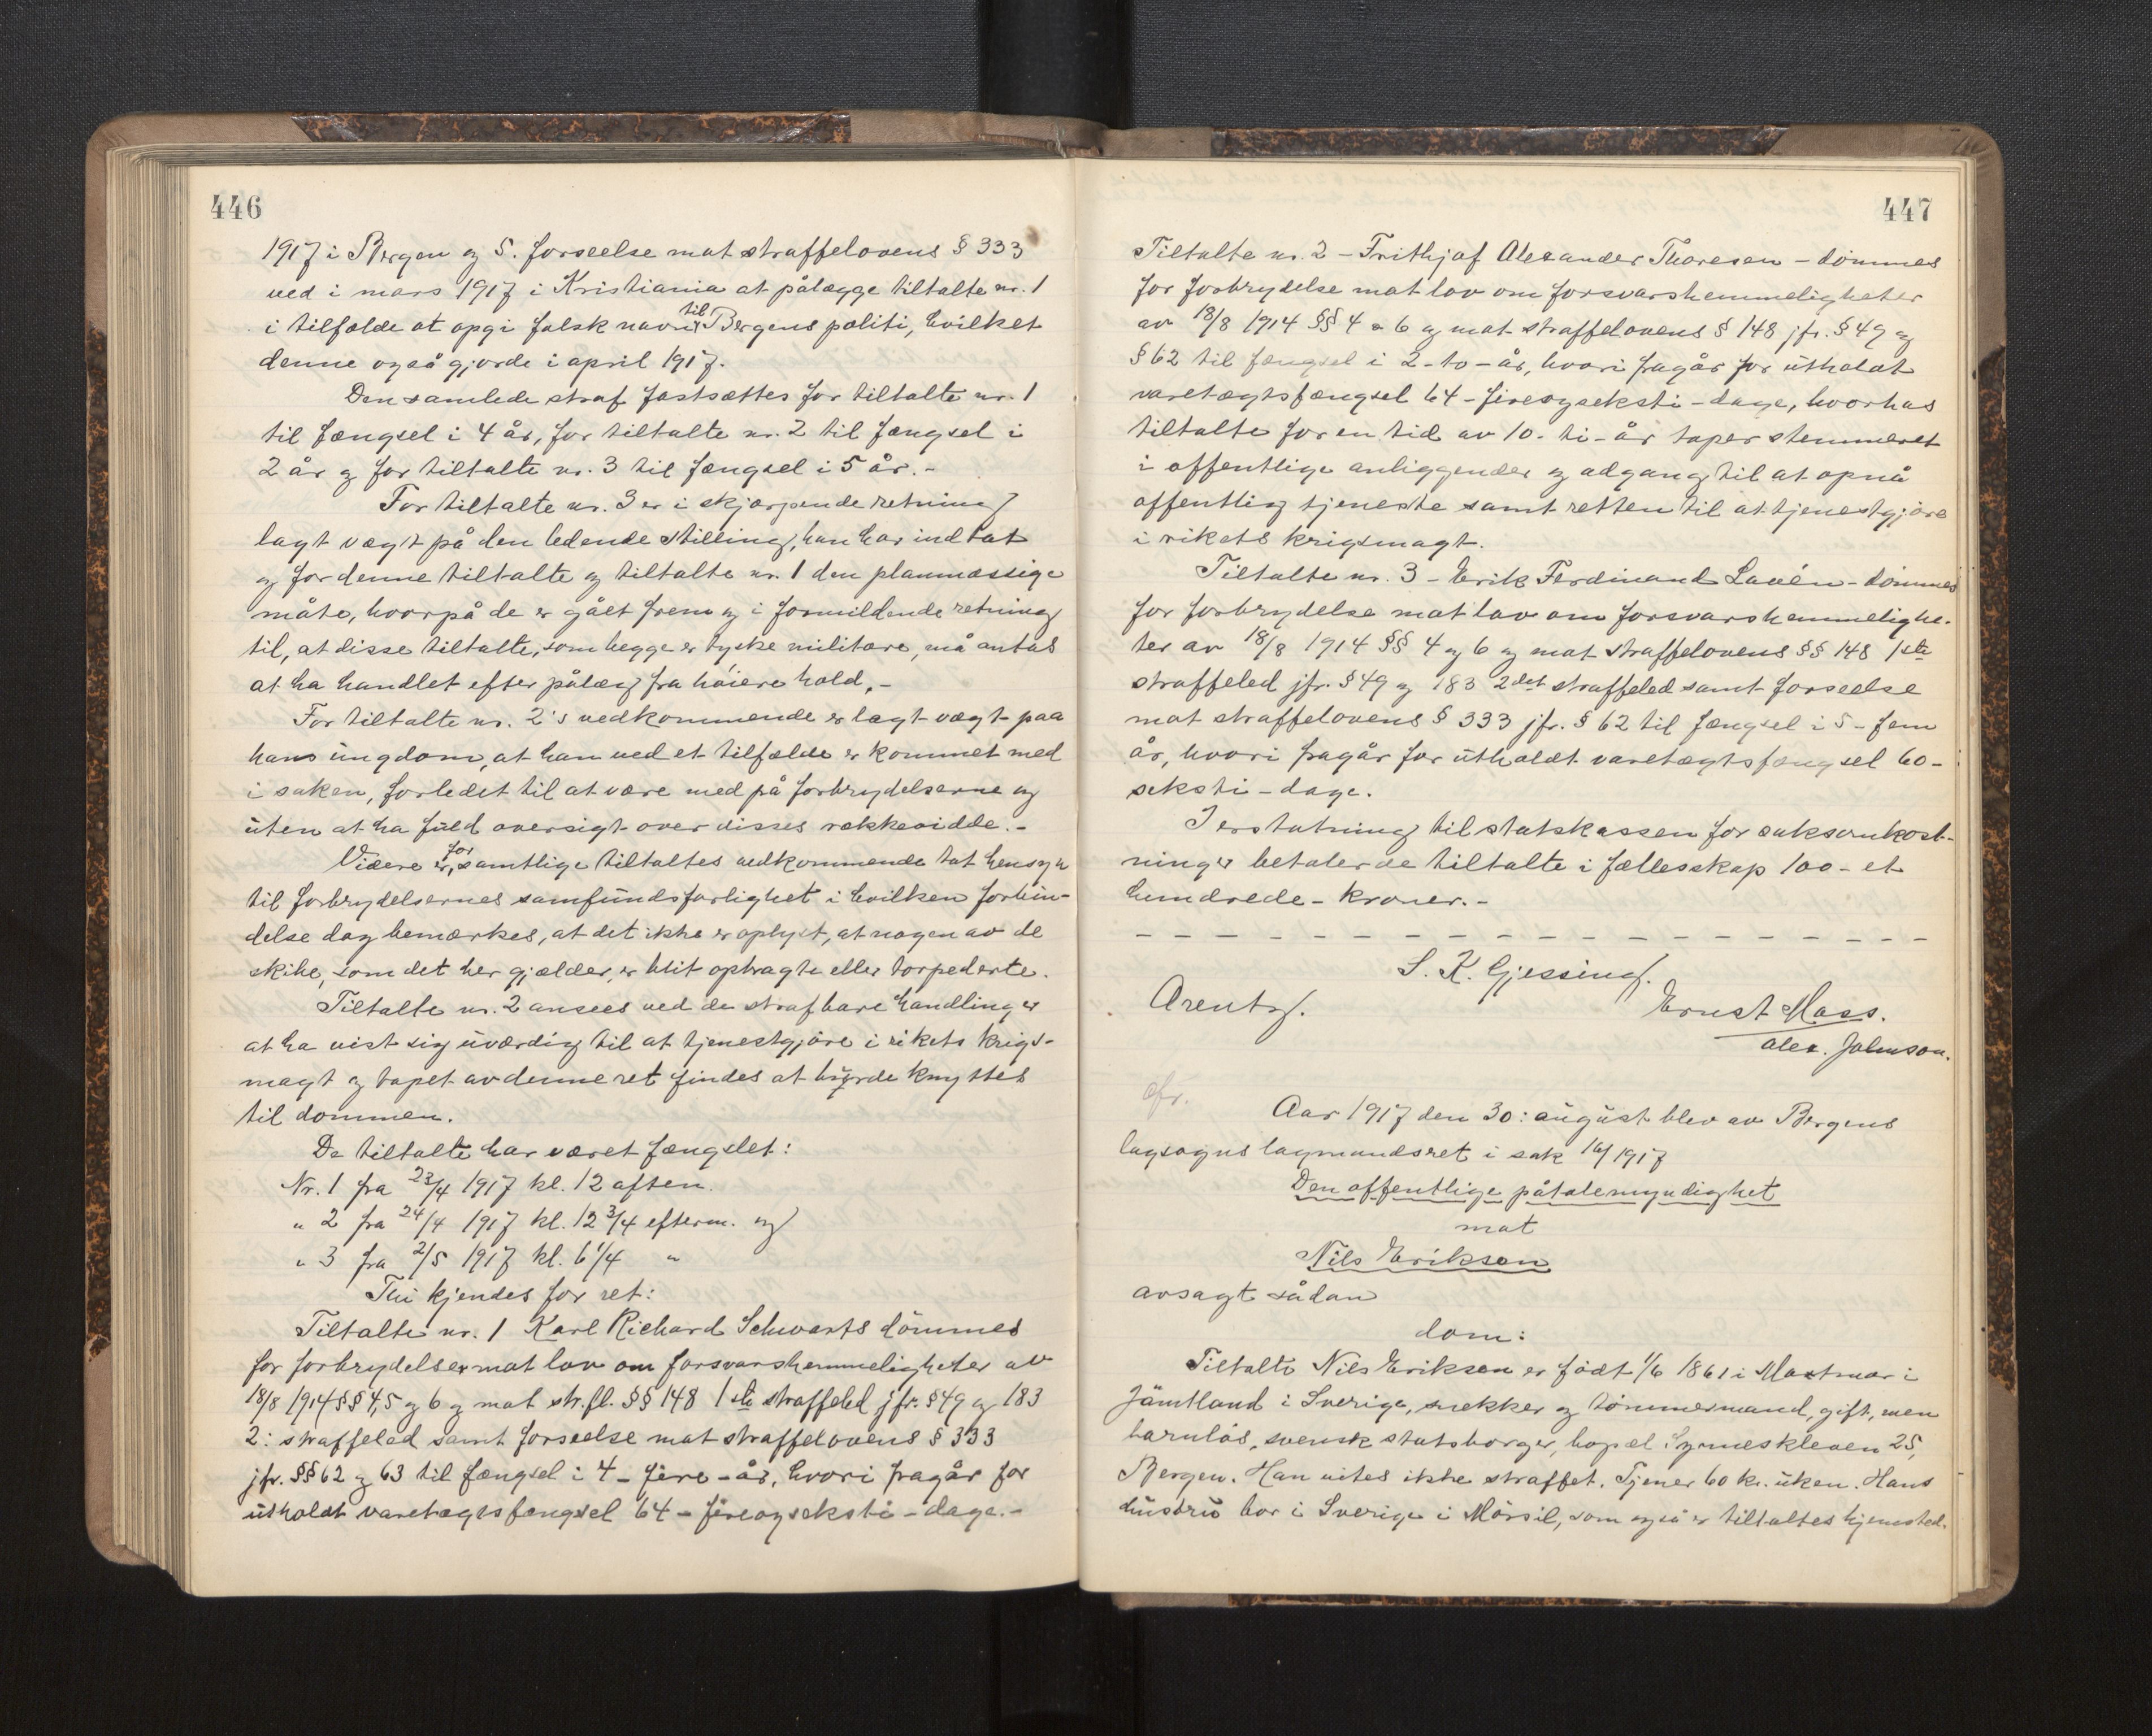 446
1917 i Bergen og 5. forseelse mot straffelovens § 333
ved i mars 1917 i Kristiania at pålægge tiltalte nr. 1
i tilfælde at opgi falsk navn til Bergens politi, hvilket
denne også gjorde i april 1917.
Den samlede straf fastsættes for tiltalte nr. 1
til fængsel i 4 år, for tiltalte nr. 2 til fængsel i
2 år og for tiltalte nr. 3 til fængsel i 5 år.-
For tiltalte nr. 3 er i skjærpende retning
lagt vægt på den ledende stilling, han har indtat
og for denne tiltalte og tiltalte nr. 1 den planmæssige
måte, hvorpå de er gået frem og i formildende retning
til, at disse tiltalte, som begge er tyske militære, må antas
at ha handlet efter pålæg fra høiere hold.-
For tiltalte nr. 2's vedkommende er lagt vægt paa
hans ungdom, at han ved et tilfælde er kommet med
i saken, forledet til at være med på forbrydelserne og
uten at ha fuld oversigt over disses rækkevidde.-
Videre er for samtlige tiltaltes vedkommende tat hensyn
til forbrydelsernes samfundsfarlighet i hvilken forbin-
delse dog bemærkes, at det ikke er oplyst, at nogen av de
skibe, som det her gjælder, er blit opbragte eller torpederte.
Tiltalte nr. 2 ansees ved de strafbare handlinger
at ha vist sig uværdig til at tjenestgjøre i rikets krigs-
magt og tapet av denne ret findes at burde knyttes
til dommen.
De tiltalte har været fængslet:
Nr. 1 fra 23/4 1917 kl. 12 aften.
" 2 fra 24/4 1917 kl. 12 3/4 efterm. og
" 3 fra 2/5 1917 kl. 6 1/4 "
Thi kjendes for ret:
Tiltalte nr. 1 Karl Richard Schwarts dømmes
for forbrydelser mot lov om forsvarshemmeligheter av
18/8 1914 §§ 4, 5 og 6 og mot str.fl. §§ 148 1ste straffeled jfr. § 49 og 183
2: straffeled samt forseelse mot straffelovens § 333
jfr. §§ 62 og 63 til fængsel i 4 - fire - år, hvori fragår for
utholdt varetægtsfængsel 64 - fireogseksti - dage.-
447
Tiltalte nr. 2 - Frithjof Alexander Thoresen - dømmes
for forbrydelse mot lov om forsvarshemmeligheter
av 18/8 1914 §§ 4 og 6 og mot straffelovens § 148 jfr. § 49 og
§ 62 til fængsel i 2 - to - år, hvori fragår for utholdt
varetægtsfængsel 64 - fireogseksti - dage, hvorhos
tiltalte for en tid av 10 - ti - år taper stemmeret
i offentlige anliggender og adgang til at opnå
offentlig tjeneste samt retten til at tjenestgjøre
i rikets krigsmagt.
Tiltalte nr. 3 - Erik Ferdinand Lavén - dømmes
for forbrydelse mot lov om forsvarshemmelighe-
ter av 18/8 1914 §§ 4 og 6 og mot straffelovens §§ 148 1ste
straffeled jfr. § 49 og 183 2det straffeled samt forseelse
mot straffelovens § 333 jfr. § 62 til fængsel i 5 - fem
år, hvori fragår for utholdt varetægtsfængsel 60 -
seksti - dage.
I erstatning til statskassen for saksomkost-
ninger betaler de tiltalte i fællesskap 100 - et
hundrede - kroner.-
S. K. Gjessing.
Arentz.
Ernst Mass.
Alex. Johnson.
cfr.
Aar 1917 den 30: august blev av Bergens
lagsogns lagmandsret i sak 16/1917
Den offentlige påtalemyndighet
mot
Nils Erikson
avsagt sådan
dom:
Tiltalte Nils Erikson er født 1/6 1861 i Mattmar i
Jämtland i Sverige, snekker og tømmermand, gift, men
barnløs, svensk statsborger, bopæl Synneskleven 25,
Bergen. Han vites ikke straffet. Tjener 60 kr. uken. Hans
hustru bor i Sverige i Mörsil, som også er tiltaltes hjemsted.